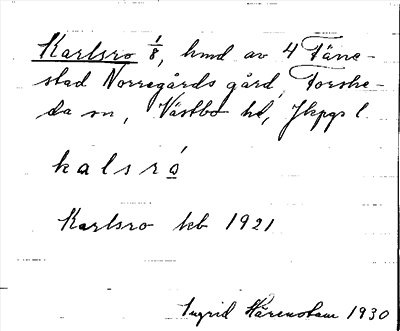 Karlsro 1/8, hmd av 4 Täne-
stad Norregårds gård, Torshe-
da sn, Västbo hd, Jkpgs l.
kalsró
Karlsro kb 1921
Ingrid Härenstam 1930